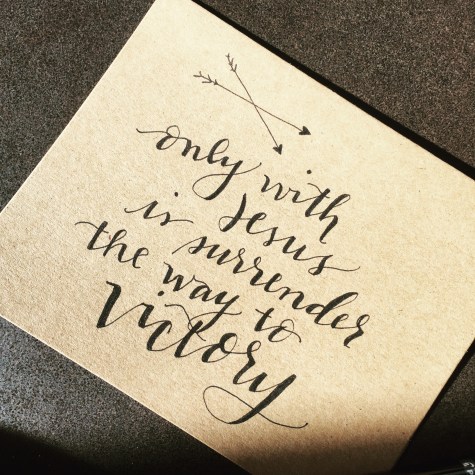 only with
Jesus
is surrender
the way to
Victory